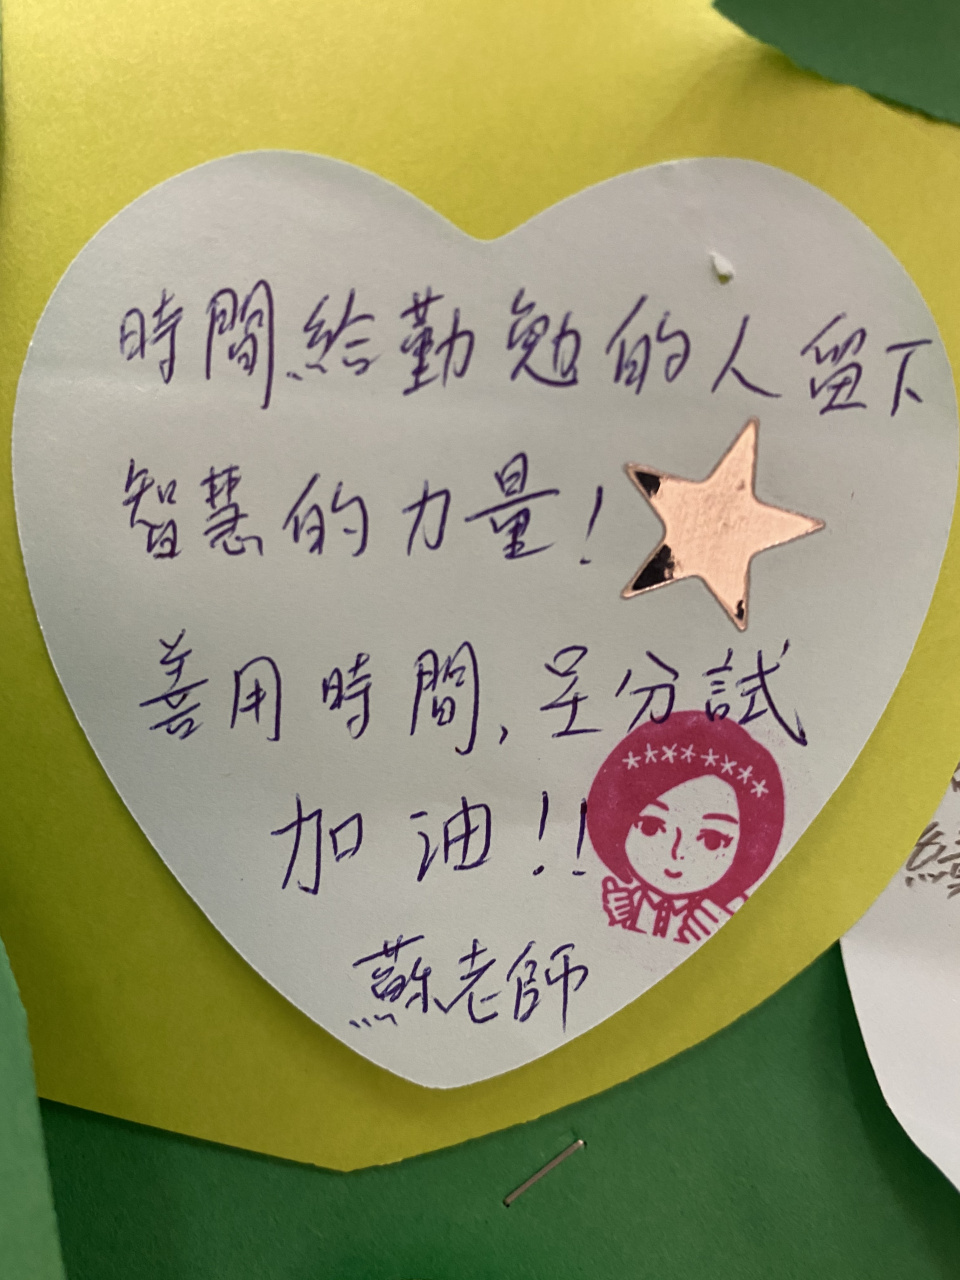 時間給勤勉的人留下
智慧的力量!
善用時間,呈分試
加油!!
蘇老師